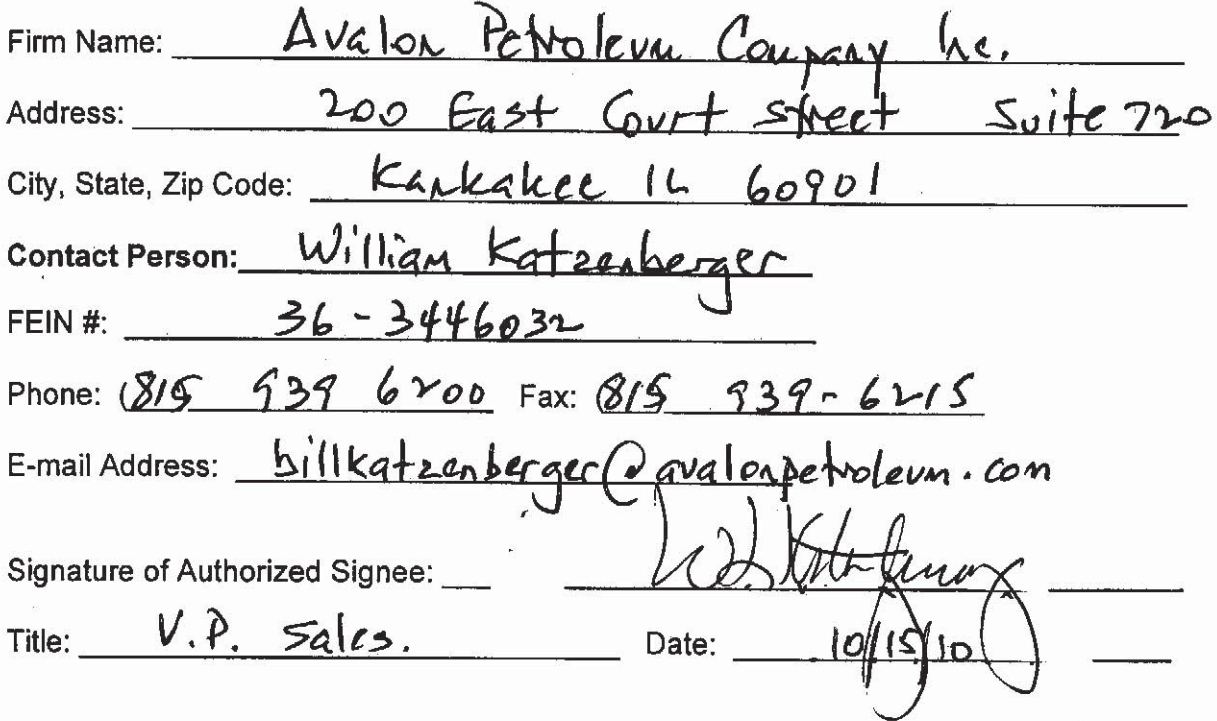 Firm Name: Avalon Petroleum Company Inc.
Address: 200 East Court Street Suite 720
City, State, Zip Code: Kankakee IL 60901
Contact Person: William Katzenberger
FEIN #: 36-3446032
Phone: (815 939 6200 Fax: (815 939-6215
E-mail Address: billkatzenberger@avalonpetroleum.com
Signature of Authorized Signee:
Title: V.P. Sales. Date: 10/15/10